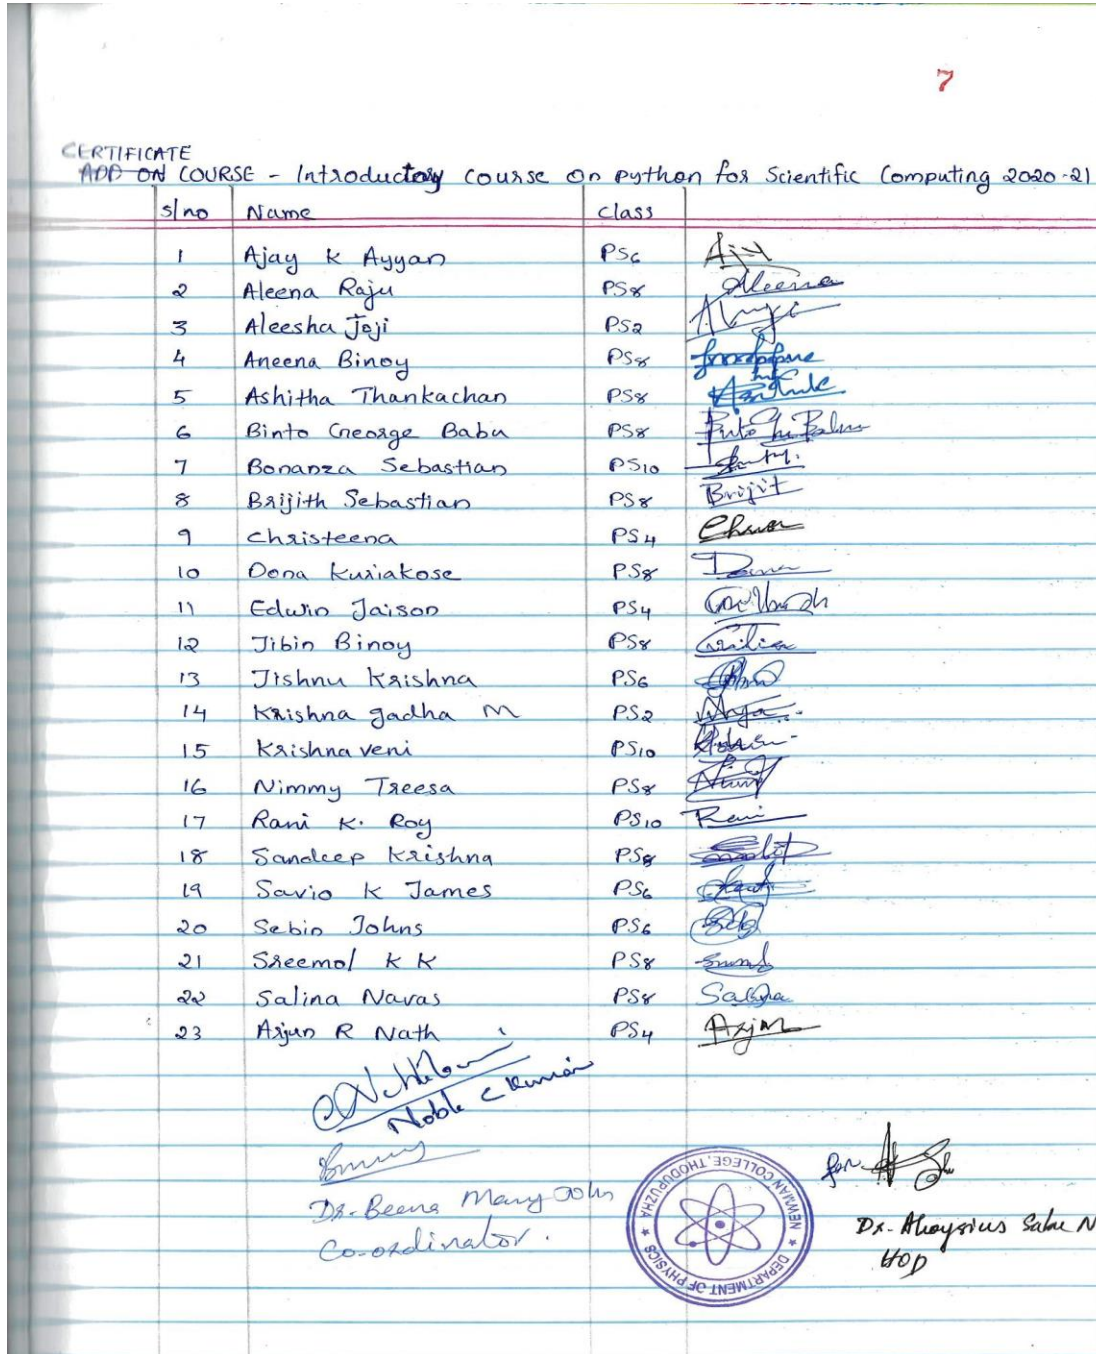 7
CERTIFICATE
ADD ON COURSE - Introductory course on python for Scientific Computing 2020-21
sl no Name class
1 Ajay K Ayyan PS6
2 Aleena Raju PS8 Aleena
3 Aleesha Joji PS2
4 Aneena Binoy PS8
5 Ashitha Thankachan PS8
6 Binto George Babu PS8
7 Bonanza Sebastian PS10
8 Brijith Sebastian PS8 Brijit
9 Christeena PS4
10 Dona Kuriakose PS8
11 Edwin Jaison PS4
12 Jibin Binoy PS8
13 Jishnu Krishna PS6
14 Krishna gadha M PS2
15 Krishna veni PS10
16 Nimmy Treesa PS8
17 Rani K. Roy PS10 Rani
18 Sandeep Krishna PS8
19 Savio K James PS6
20 Sebin Johns PS6
21 Sreemol K K PS8
22 Salina Navas PS8
23 Arjun R Nath PS4 Arjun
Noble C Kurian
Dr. Beena Mary John
Co-ordinator.
NEWMAN COLLEGE, THODUPUZHA ★ DEPARTMENT OF PHYSICS ★
for
Dr. Aloysius Sabu N
HOD